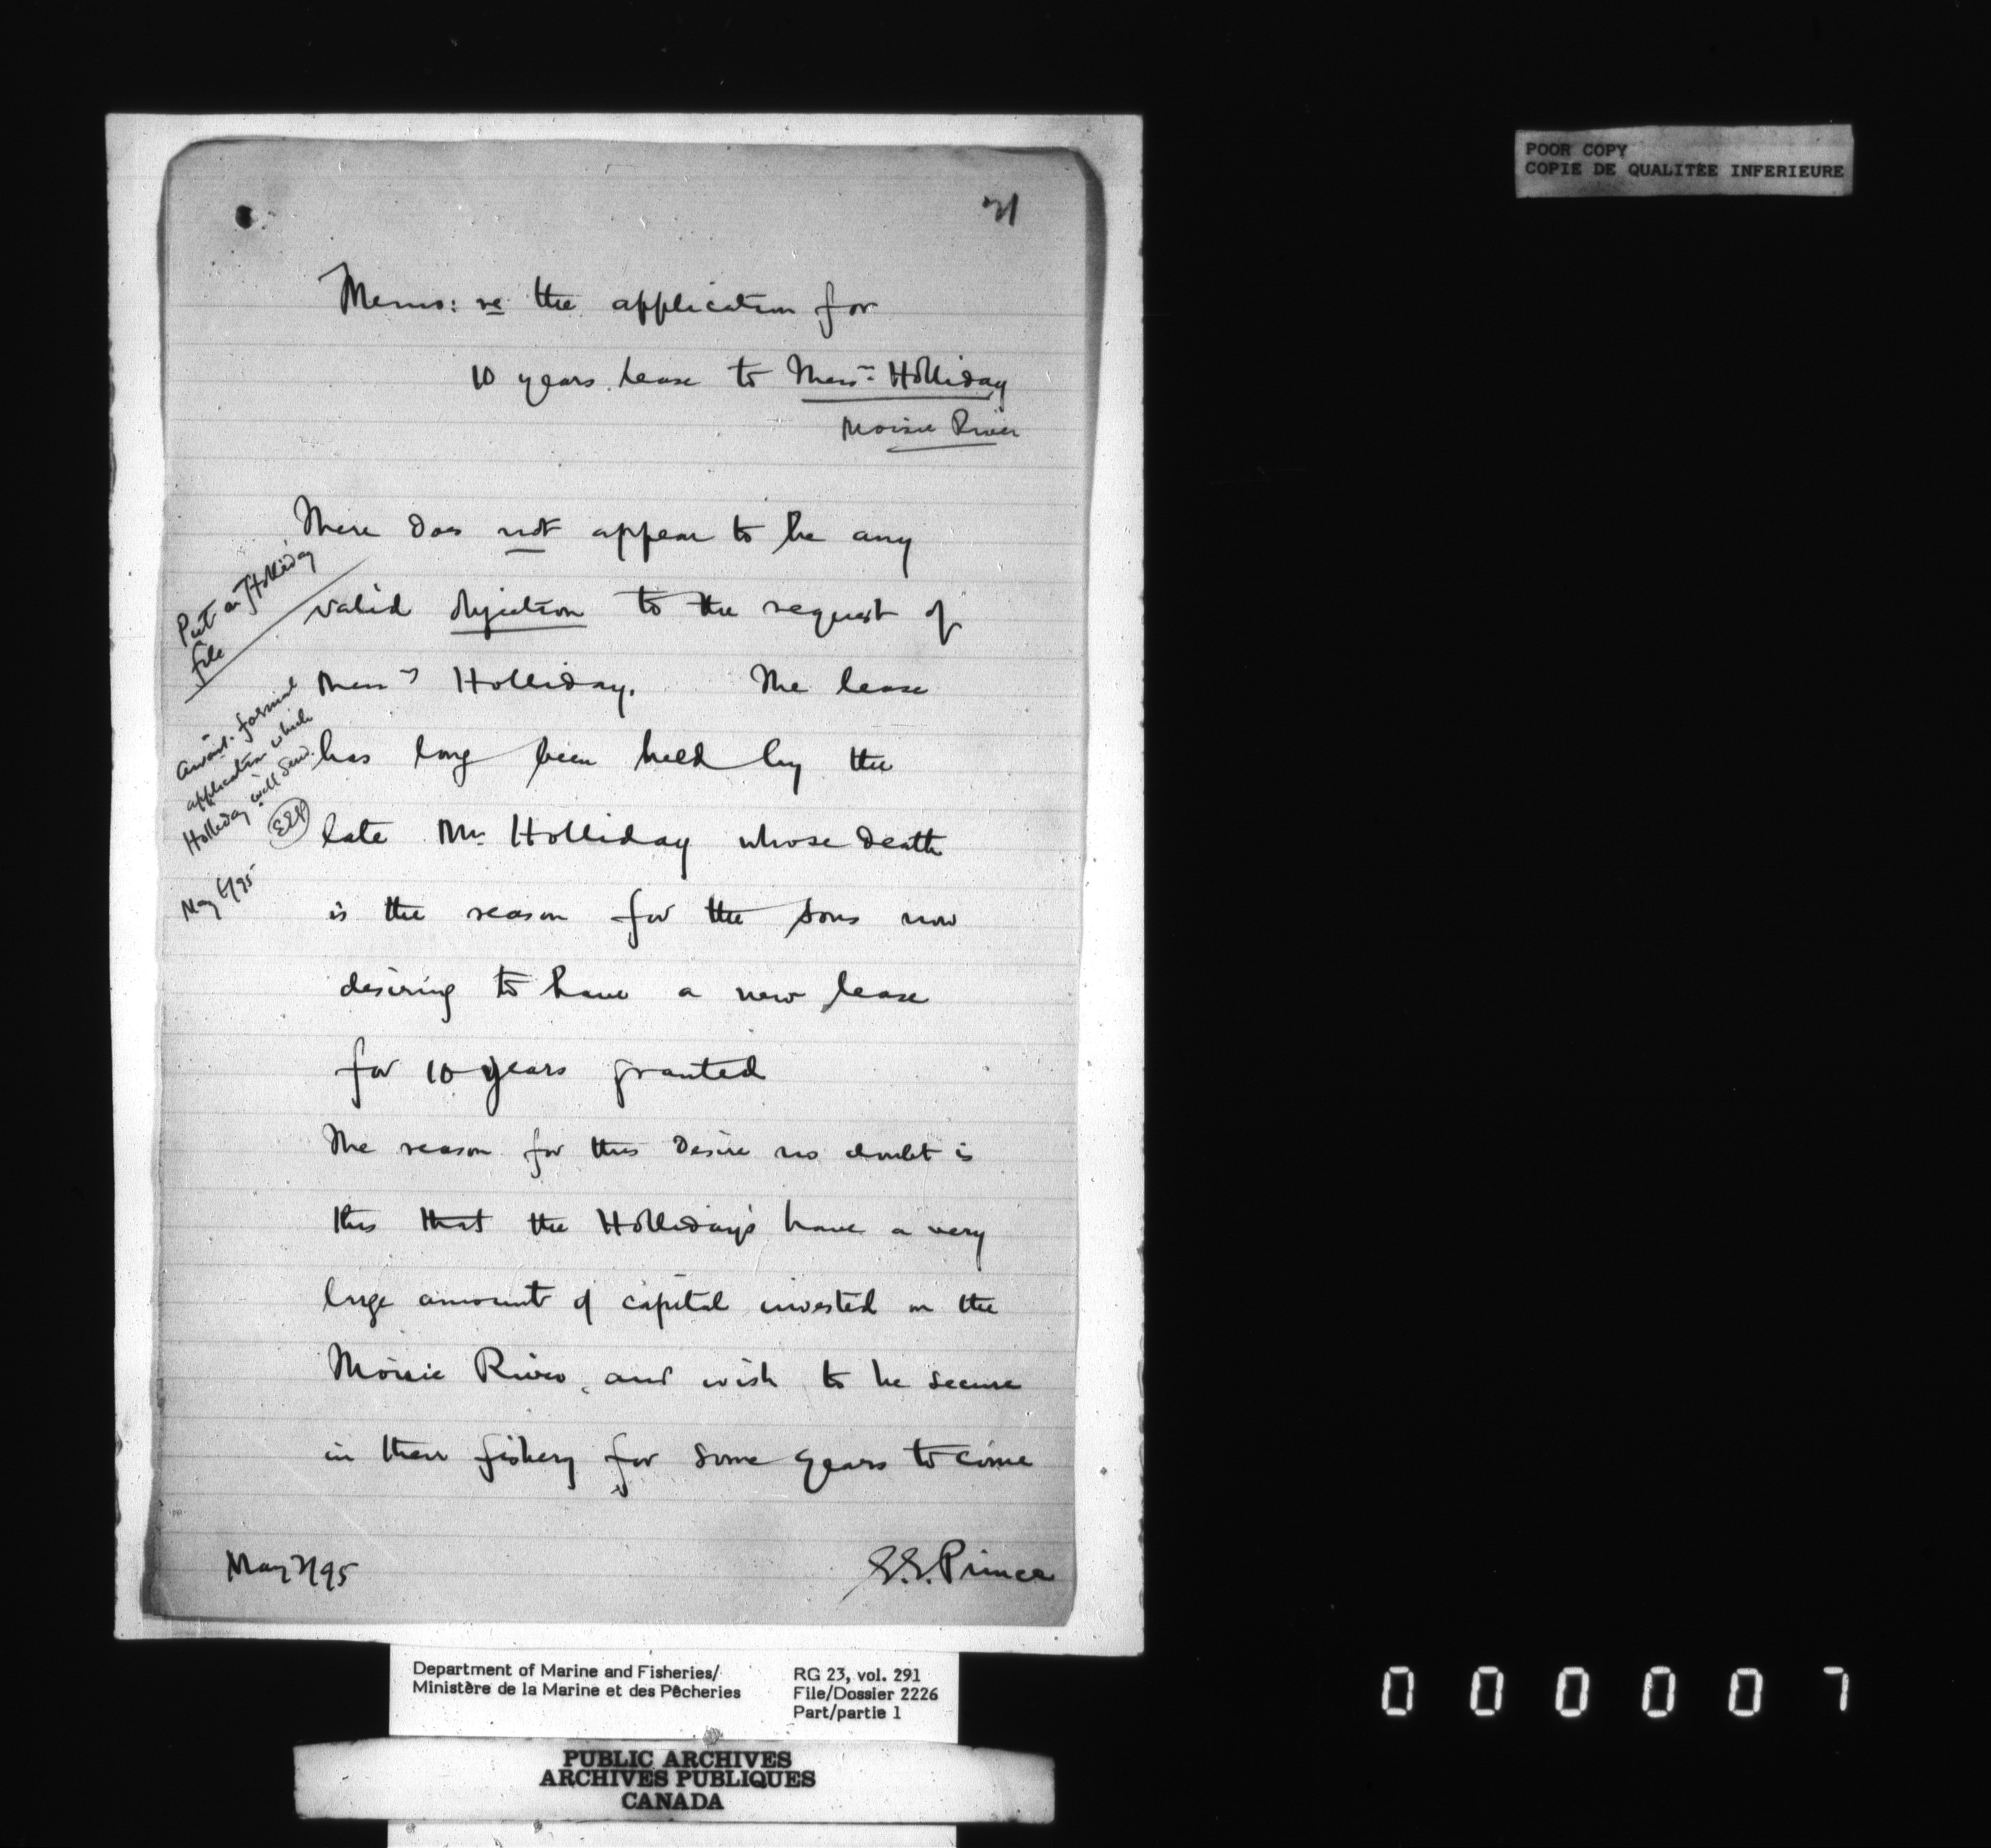 POOR COPY
COPIE DE QUALITÉE INFERIEURE
21
Memo: re the application for
10 years lease to Messrs. Holliday
Moisie River
There does not appear to be any
valid objection to the request of
Messrs Holliday. The lease
has long been held by the
late Mr. Holliday whose death
is the reason for the sons now
desiring to have a new lease
for 10 years granted
The reason for this desire no doubt is
this that the Holliday's have a very
large amount of capital invested on the
Moisie River, and wish to be secure
in their fishery for some years to come
May 7/95
E.E. Prince
Put on Holliday
file
Await formal
application which
Holliday will send.
EEP
May 8/95
Department of Marine and Fisheries/
Ministère de la Marine et des Pêcheries
RG 23, vol. 291
File/Dossier 2226
Part/partie 1
PUBLIC ARCHIVES
ARCHIVES PUBLIQUES
CANADA
000007